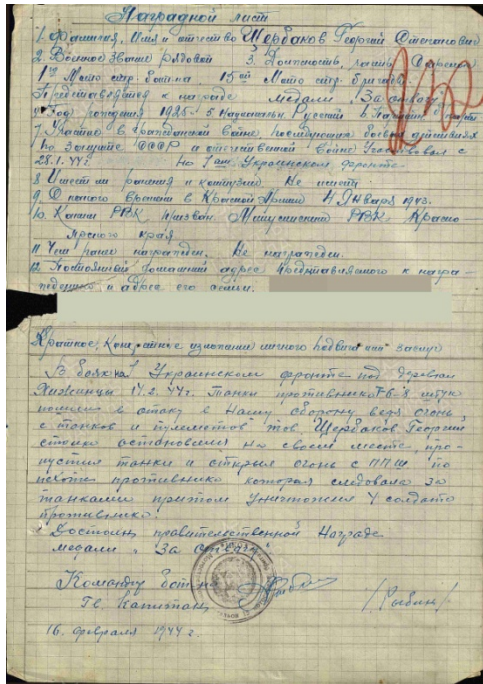 Наградной лист
1. Фамилия, Имя и отчество Щербаков Георгий Степанович
2. Военное звание рядовой 3. Должность, часть Стрелок
1го Мото стр. Бат-на 15ой Мото стр. бригады.
Представляется к награде медали "За отвагу"
4 Год рождения 1925 5 Национальн. Русский 6. Партийн.
7 Участие в гражданской войне, последующих боевых действиях
по защите СССР и отечественной войне Участвовал с
28.1.44г. На 1ом Украинском фронте
8 Имеет ли ранения и контузии Не имеет
9. С какого времени в Красной Армии 4 Января 1943.
10. Каким РВК призван. РВК, Красно-
ярского края.
11. Чем ранее награжден. Не награжден.
12 Постоянный домашний адрес представляемого к награ-
ждению и адрес его семьи.
Краткое, конкретное изложение личного подвига или заслуг
В боях на 1 Украинском фронте под деревни
Хижинцы 14.2.44г. Танки противника 6-8 штук
пошли в атаку в Нашу сторону ведя огонь
с танков и пулеметов тов. Щербаков Георгий
стойко остановился на своем месте, про-
пустил танки и открыл огонь с ППШ по
пехоте противника которая следовала за
танками притом уничтожил 4 солдата
противника.
Достоин правительственной Награде
медали "За отвагу"
Командир бат-на
Гв. Капитан /Рыбин/
16. февраля 1944 г.